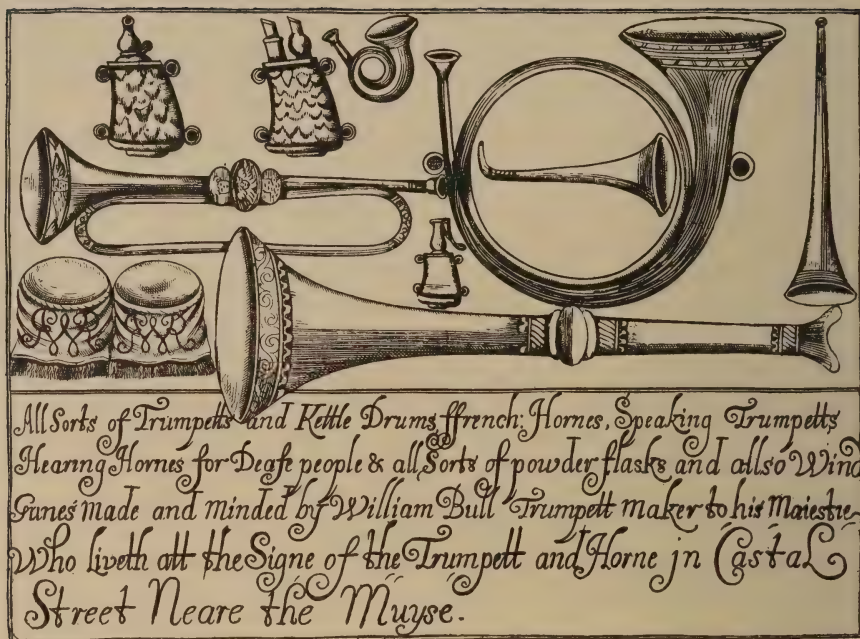 All Sorts of Trumpetts and Kettle Drums ffrench: Hornes, Speaking Trumpetts
Hearing Hornes for Deafe people & all Sorts of powder flasks and allso Wind
Gunes made and minded by William Bull Trumpett maker to his Maiestie
Who liveth att the Signe of the Trumpett and Horne jn Castal
Street Neare the Muyse.